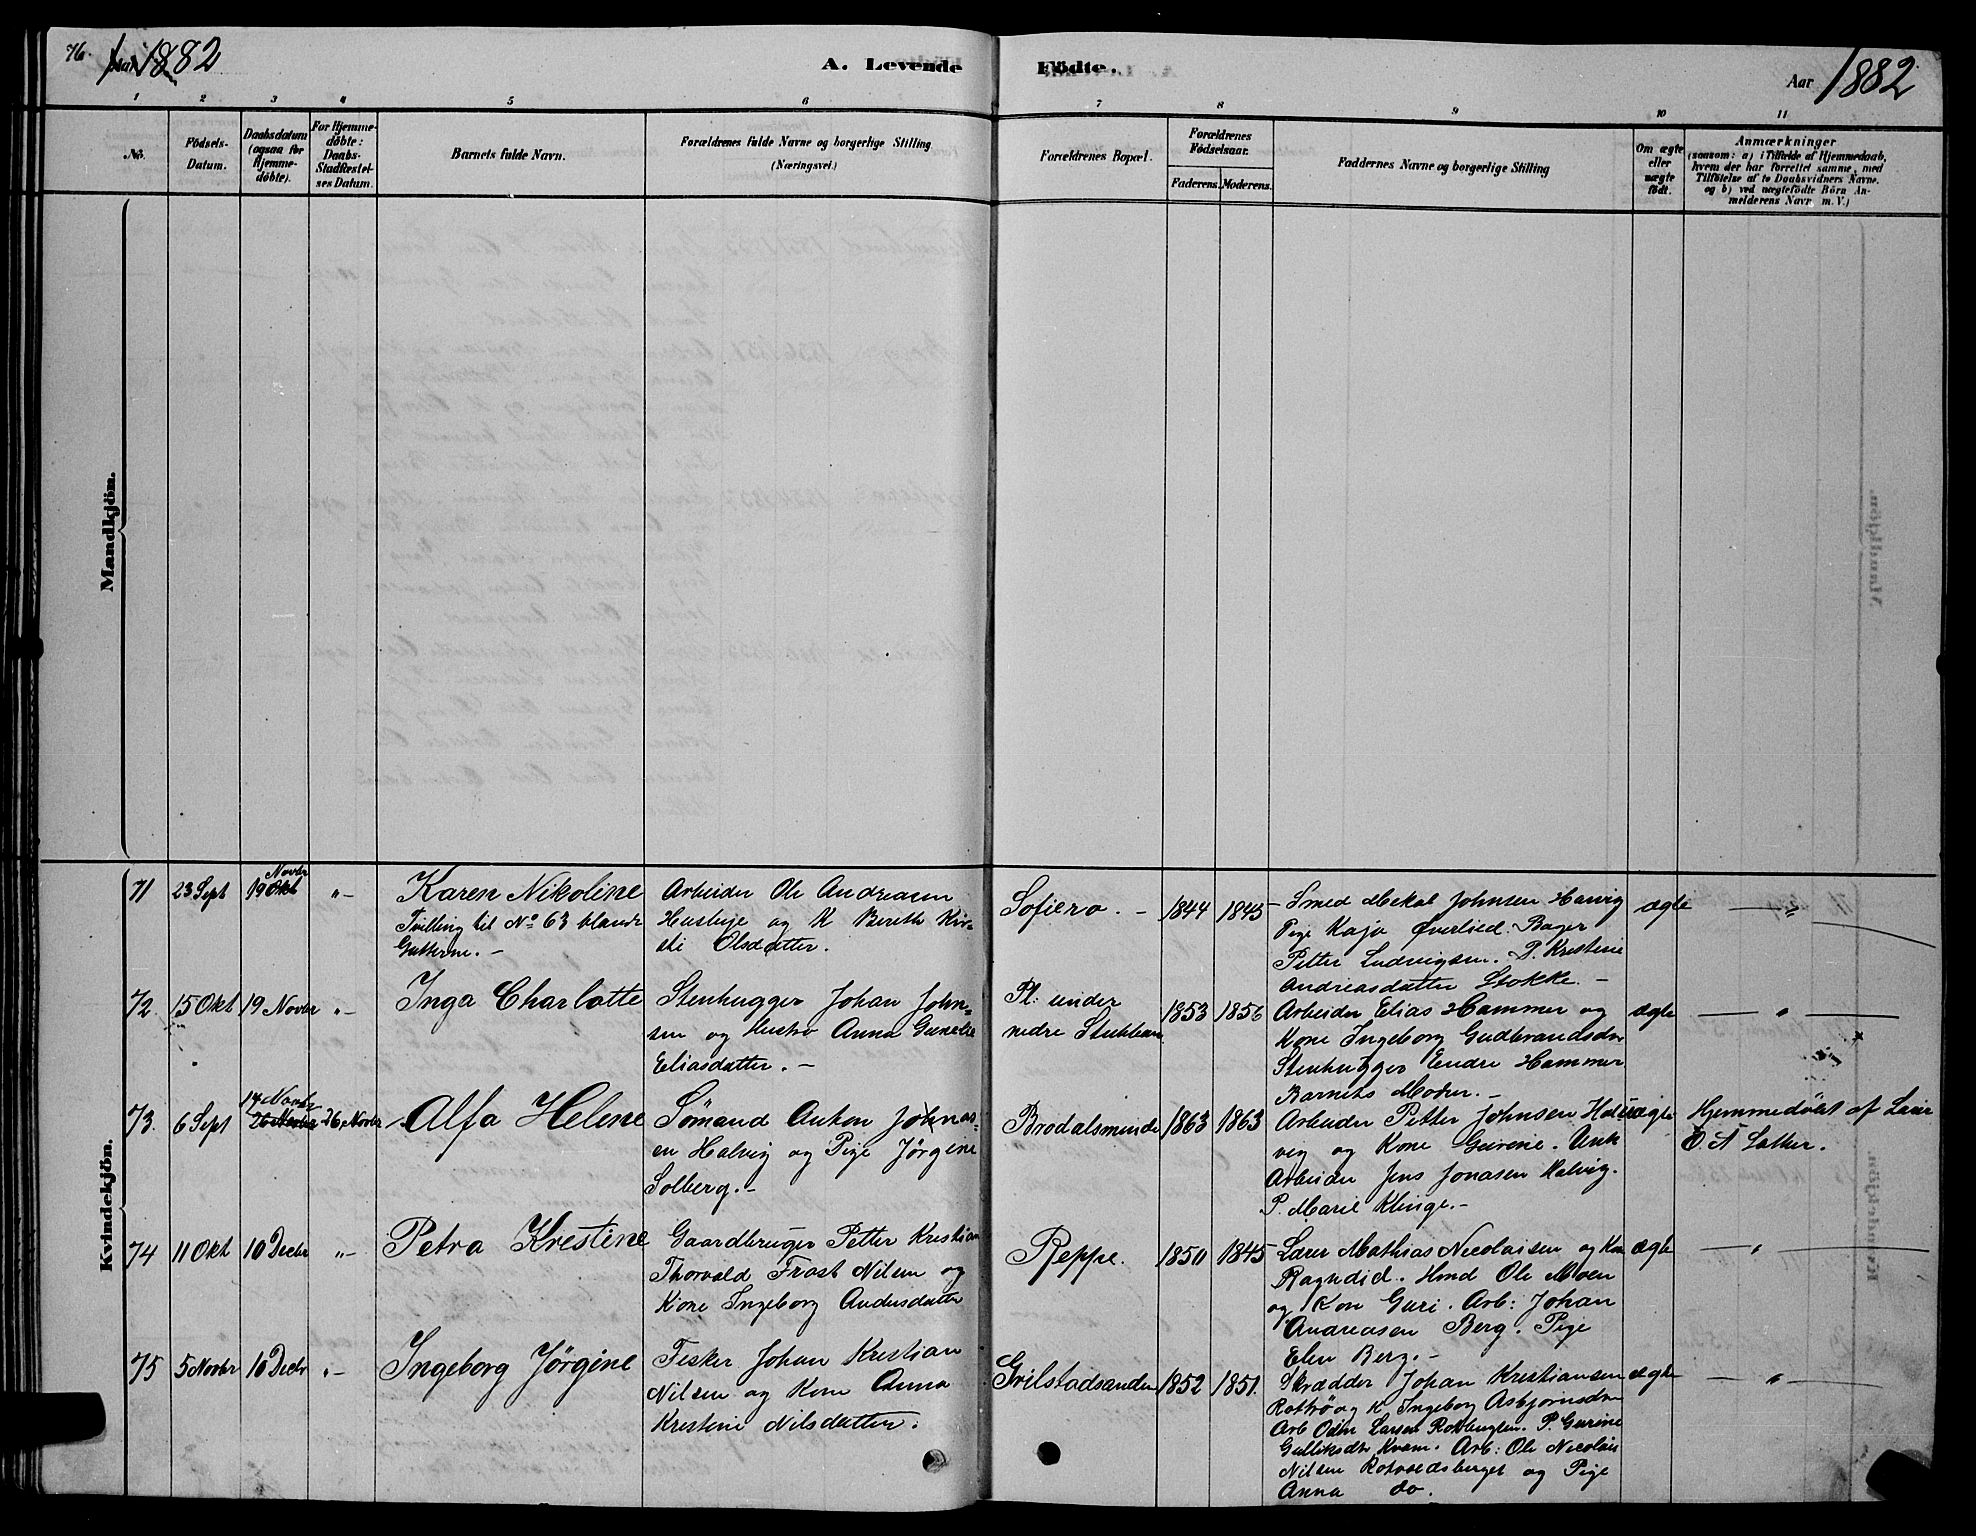 76.
Aar 1882
A. Levende Födte.
Aar 1882
1 2 3 4 5 6 7 8 9 10 11
No.
Födsels-
Datum.
Daabsdatum
(ogsaa for
Hjemme-
döbte).
For Hjemme-
döbte:
Daabs-
Stadfæstel-
ses Datum.
Barnets fulde Navn.
Forældrenes fulde Navne og borgerlige Stilling
(Næringsvei.)
Forældrenes Bopæl.
Forældrenes
Födselsaar.
Faderens. Moderens.
Faddernes Navne og borgerlige Stilling
Om ægte
eller
uægte
födt.
Anmærkninger
(saasom: a) i Tilfælde af Hjemmedaab,
hvem der har forrettet samme, med
Tilföielse af to Daabsvidners Navne.
og b) ved uægtefödte Börn An-
melderens Navn m. V.)
Mandkjön.
Kvindekjön.
71
23 Sept
Novbr
19 Okt
"-
Karen Nikoline
Tvilling til No 63 blandt
Gutterne.-
Arbeider Ole Andreasen
og K Bereth Kir-
sti Olsdatter.
Sofiero.-
1844
1845
Smed Mekal Johnsen Havig
Pige Kaja Øverlied. Bager
Petter Ludvigsen. P. Kristine
Andreasdatter Stokke.-
ægte
- " -
72.
15 Okt
19 Novbr
"-
Inga Charlotte
Stenhugger Johan John-
sen og Hustro Anna Gunelie
Eliasdatter.-
Pl: under
nedre Stubban
1853
1856
Arbeider Elias Hammer og
Kone Ingeborg Gudbrandsdtr
Stenhugger Endre Hammer
Barnets Moder.-
ægte
- " -
73.
6 Sept
14 Novbr
26 Novbr
26 Novbr
Alfa Helene
Sømand Anton Johnas-
en Halvig og Pige Jørgine
Solberg.-
Brodalsminde
1863
1863
Arbeider Petter Johnsen Hal-
vig og Kone Gurine. Enk
Arbeider Jens Jonasen Halvig.
P. Marie Klinge.-
uægte
Hjemmedöbt af Lærer
O. N. Sakker.
74
11 Okt
10 Decbr
"-
Petra Kristine
Gaardbruger Petter Kristian
Thorvald Frost Nilsen og
Kone Ingeborg Andersdatter
Reppe.
1850
1845
Lærer Mathias Nicolaisen og Kone
Ragndid. Hmd Ole Moen
og Kon Guri. Arb: Johan
Andreasen Berg. Pige
Elen Berg.-
ægte
- " -
75
5 Novbr
10 Decbr
"-
Ingeborg Jørgine
Fisker Johan Kristian
Nilsen og Kone Anna
Kristine Nilsdatter.
Grilstadsanden
1852
1851.
Skrædder Johan Kristiansen
Rotvö og K Ingeborg Asbjørnsdtr
Arb Odin Larsen P. Gurine
Gulliksdtr Kvam. Arb: Ole Nicolai
Nilsen Rotvoldsberget og Pige
Anna do.
ægte
- " -